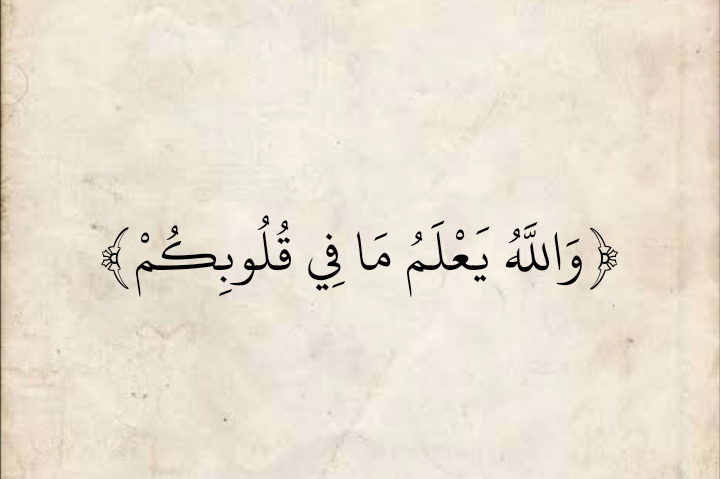 ﴿وَاللَّهُ يَعْلَمُ مَا فِي قُلُوبِكُمْ﴾